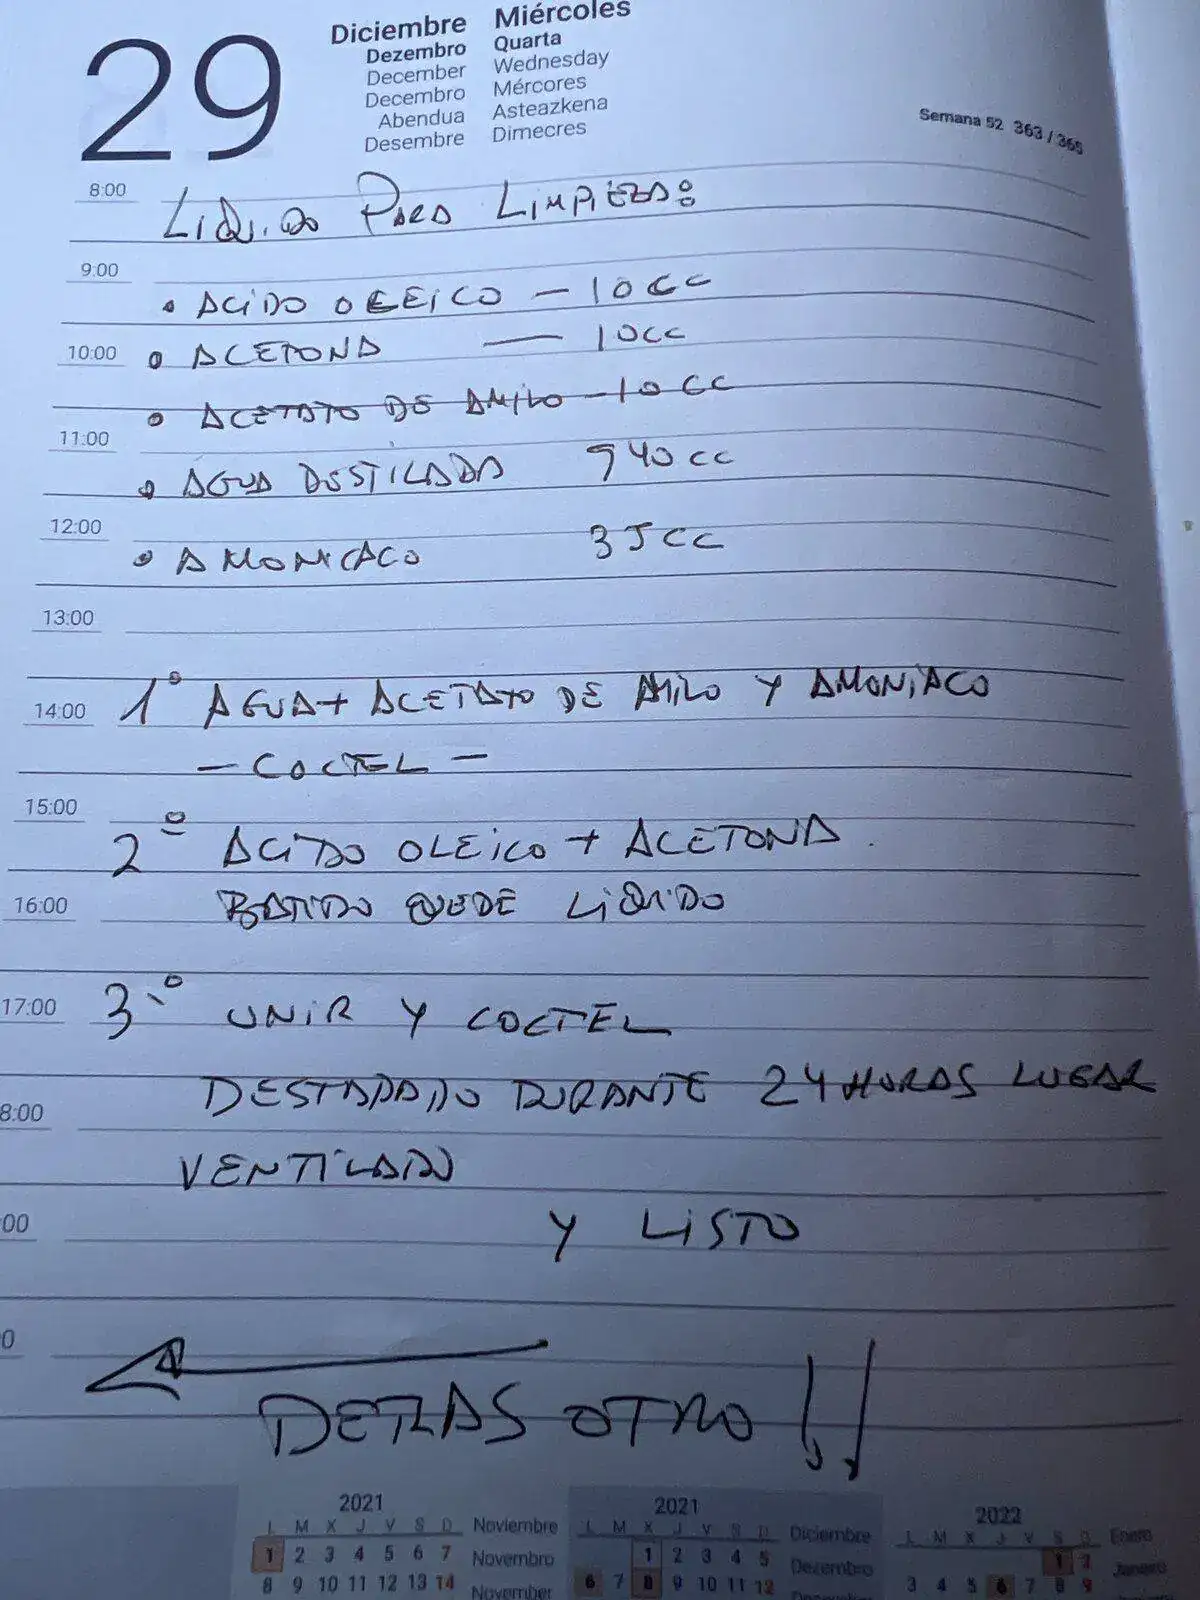 29
Diciembre Miércoles
Dezembro Quarta
December Wednesday
Decembro Mércores
Abendua Asteazkena
Desembre Dimecres
Semana 52 363 / 365
8:00 LIQUIDO PARA LIMPIEZA:
9:00
• ACIDO OLEICO — 10CC
10:00 • ACETONA — 10CC
• ACETATO DE AMILO — 10 CC
11:00
• AGUA DESTILADA 940CC
12:00
• AMONIACO 35CC
13:00
1º AGUA + ACETATO DE AMILO Y AMONIACO
14:00
— COCTEL —
15:00
2º ACIDO OLEICO + ACETONA.
16:00 BATIDO QUEDE LIQUIDO
17:00 3.º UNIR Y COCTEL
DESTAPADO DURANTE 24 HORAS LUGAR
8:00
VENTILADO
00 Y LISTO
0
DETRAS OTRO !!
2021 2021 2022
L M X J V S D Noviembre L M X J V S D Diciembre L M X J V S D Enero
1 2 3 4 5 6 7 Novembro 1 2 3 4 5 Dezembro 1 2 Janeiro
8 9 10 11 12 13 14 November 6 7 8 9 10 11 12 3 4 5 6 7 8 9